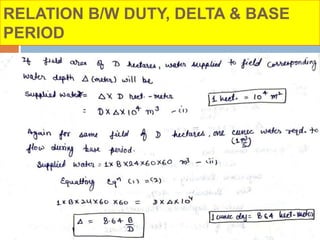 RELATION B/W DUTY, DELTA & BASE
PERIOD
If field area of D hectares, water supplied to field corresponding
water depth Δ (meter) will be
Supplied water = Δ X D hect-meter
1 hect. = 10⁴ m²
= D X Δ X 10⁴ m³ - (i)
Again for same field of D hectares, one cumec water reqd. to
(1 m³/s)
flow during base period.
Supplied water = 1 X B X 24 X 60 X 60 m³ - (ii)
Equating Eqⁿ (1) = (2)
1 X B X 24 X 60 X 60 = D X Δ X 10⁴
Δ = 8.64 B/D
1 cumec day = 8.64 hect-meter